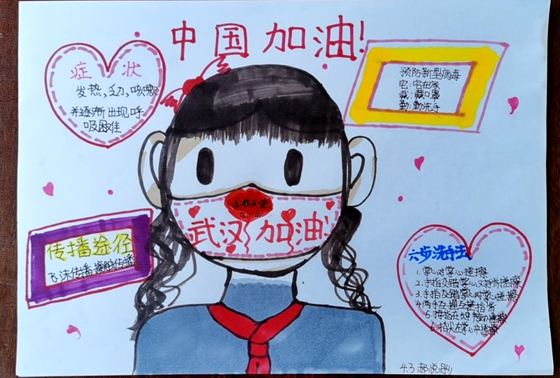 中国加油!
症 状
发热,乏力,咳嗽
并逐渐出现呼
吸困难
预防新型病毒
宅:宅在家
戴:戴口罩
勤:勤洗手
武汉加油!
传播途径
飞沫传播,接触传播
六步洗手法
1.掌心对掌心搓擦
2.手指交错掌心对手背搓擦
3.手指交错掌心对掌心搓擦
4.两手互握互搓指背
4.3